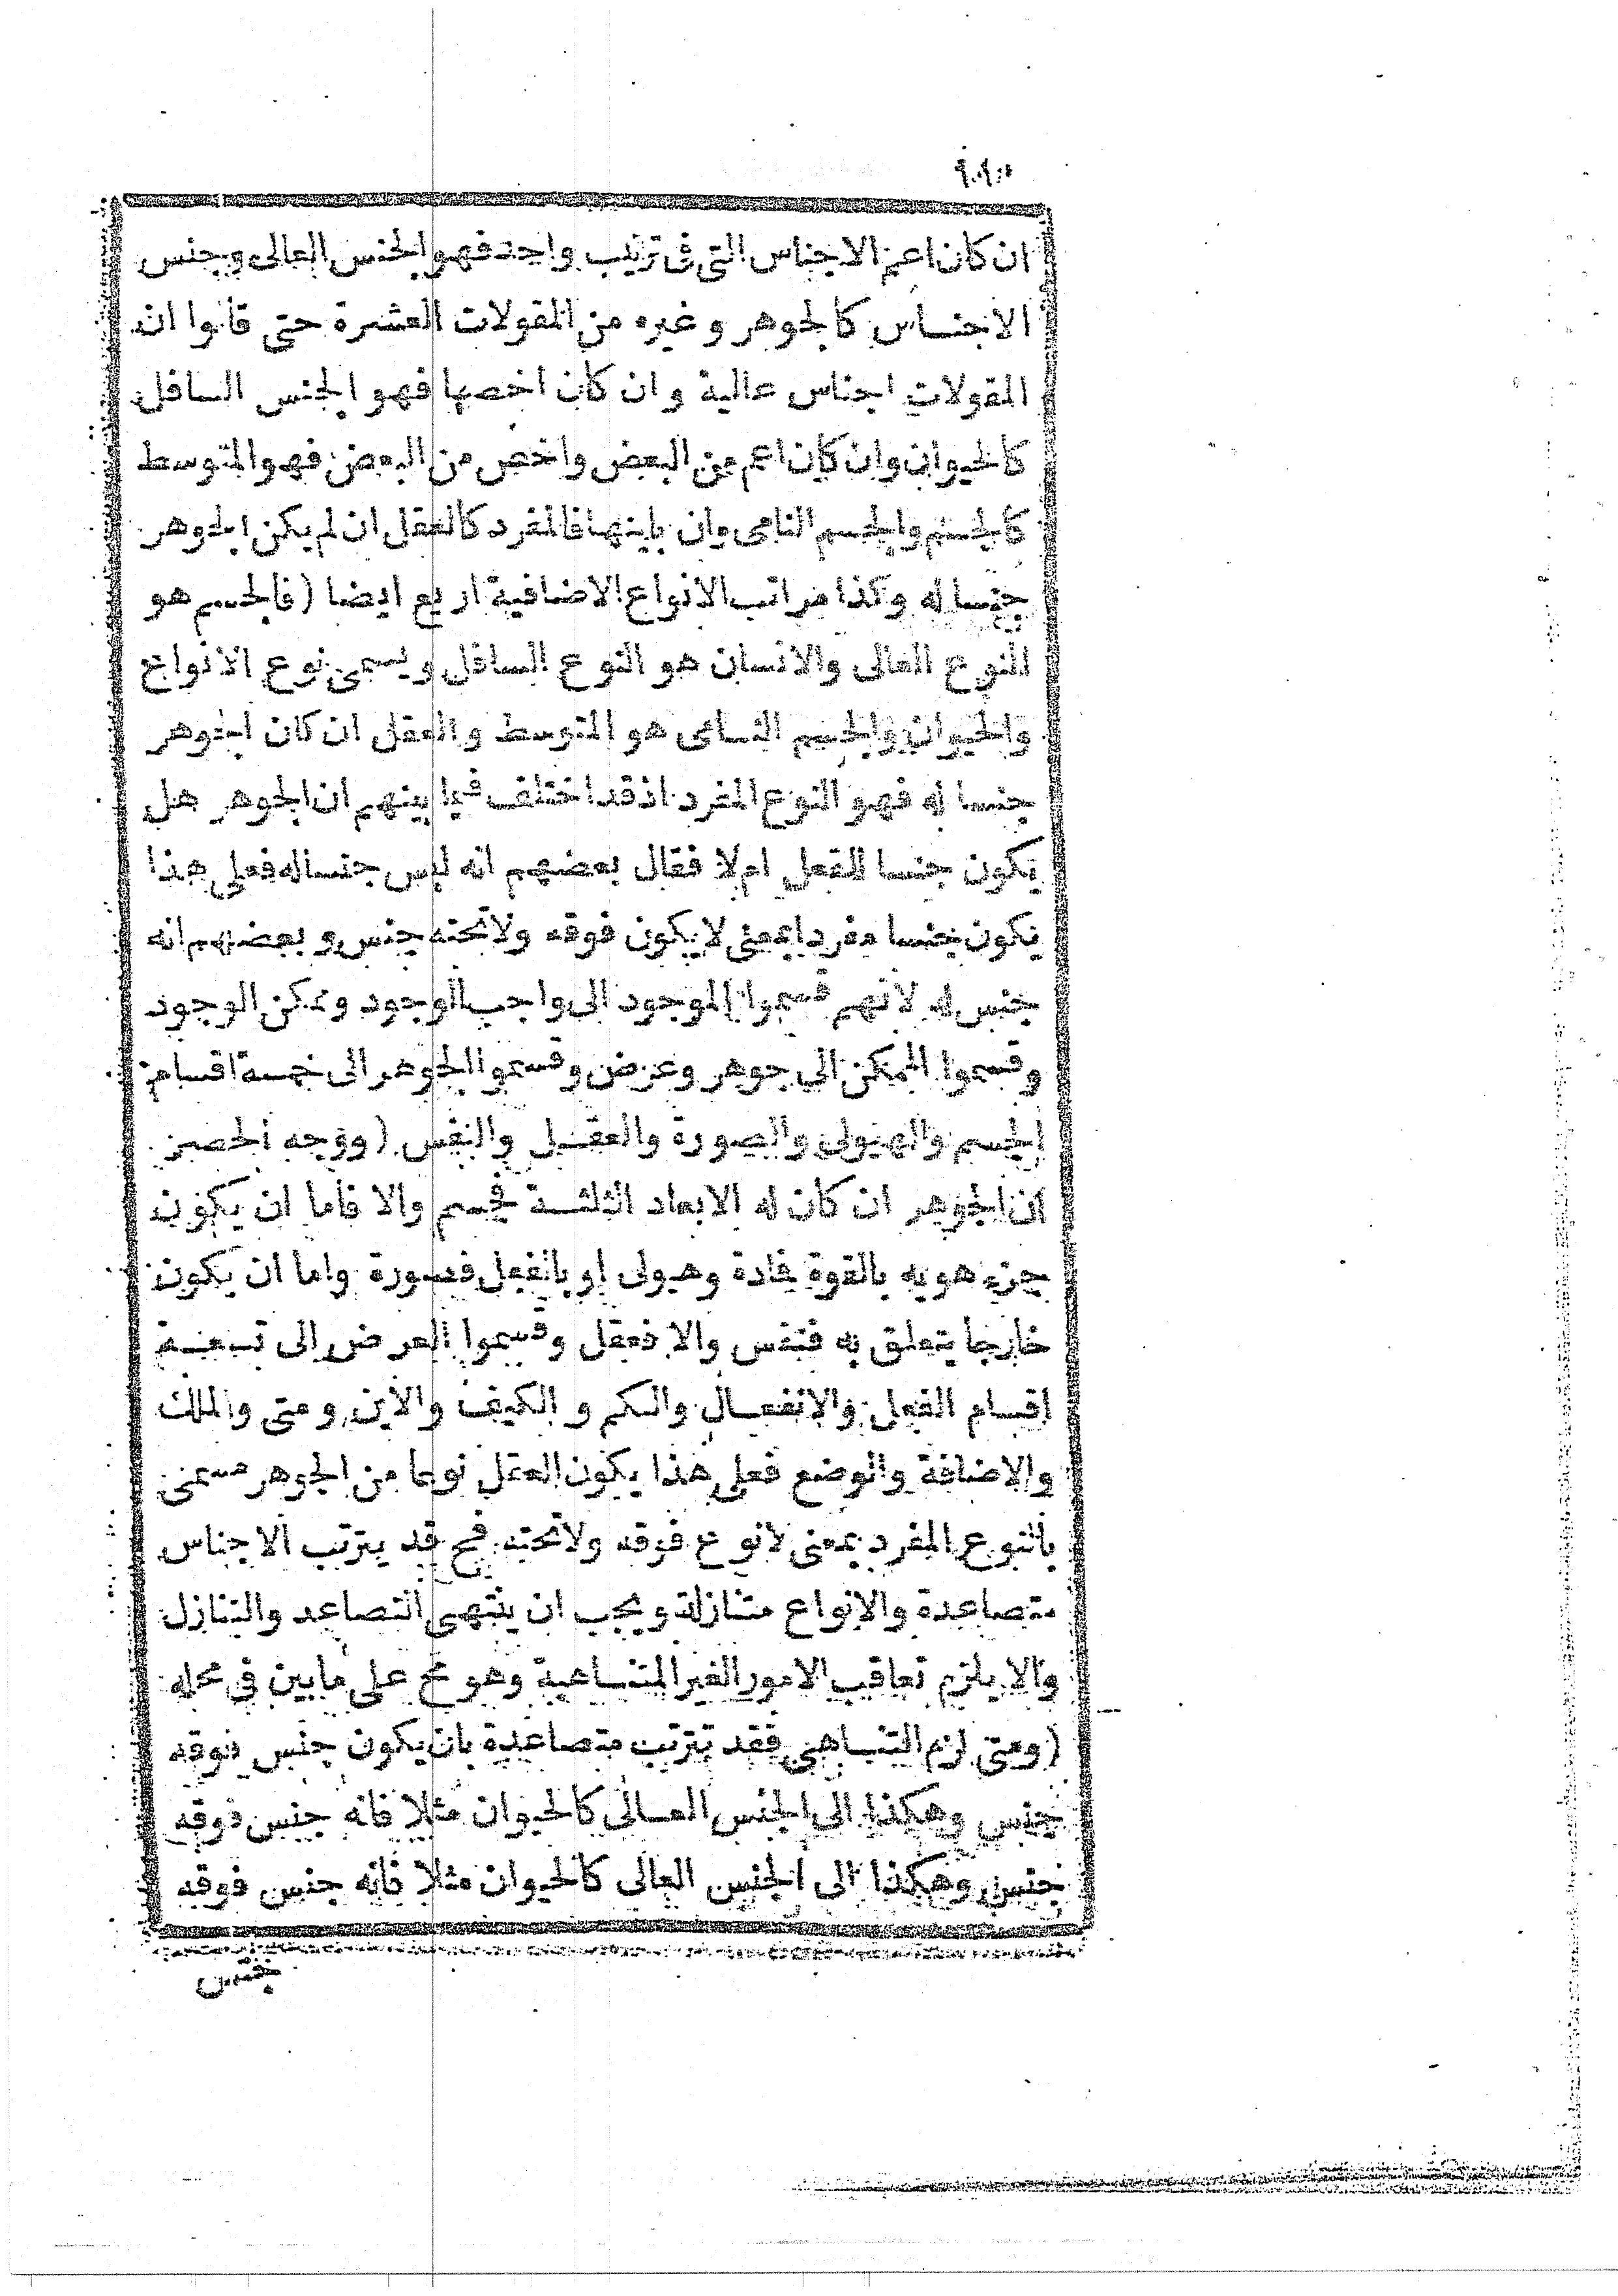 ان كان اعم الاجناس التى فى ترتيب واحد فهو الجنس العالى وجنس
الاجناس كالجوهر وغيره من المقولات العشرة حتى قالوا ان
المقولات اجناس عالية وان كان اخصها فهو الجنس السافل
كالحيوان وان كان اعم من البعض واخص من البعض فهو المتوسط
كالجسم والجسم النامى وان باينها فالمفرد كالعقل ان لم يكن الجوهر
جنسا له وكذا مراتب الانواع الاضافية اربع ايضا (فالجسم هو
النوع العالى والانسان هو النوع السافل ويسمى نوع الانواع
والحيوان والجسم النامى هو المتوسط والعقل ان كان الجوهر
جنسا له فهو النوع المفرد اذ قد اختلف فيما بينهم ان الجوهر هل
يكون جنسا للعقل ام لا فقال بعضهم انه ليس جنسا له فعلى هذا
يكون جنسا مفردا بمعنى لا يكون فوقه ولا تحته جنس وبعضهم انه
جنس له لانهم قسموا الموجود الى واجب الوجود وممكن الوجود
وقسموا الممكن الى جوهر وعرض وقسموا الجوهر الى خمسة اقسام
الجسم والهيولى والصورة والعقل والنفس (ووجه الحصر
ان الجوهر ان كان له الابعاد الثلثة فجسم والا فاما ان يكون
جزء هو به بالقوة فمادة وهيولى او بالفعل فصورة واما ان يكون
خارجا يتعلق به فنفس والا فعقل وقسموا العرض الى تسعة
اقسام الفعل والانفعال والكم والكيف والاين ومتى والملك
والاضافة والوضع فعلى هذا يكون العقل نوعا من الجوهر مسمى
بالنوع المفرد بمعنى لا نوع فوقه ولا تحته فح قد يترتب الاجناس
متصاعدة والانواع متنازلة ويجب ان ينتهى التصاعد والتنازل
والا يلزم تعاقب الامور الغير المتناهية وهو مح على ما بين فى محله
(ومتى لزم التناهى فقد تترتب متصاعدة بان يكون جنس فوقه
جنس وهكذا الى الجنس العالى كالحيوان مثلا فانه جنس فوقه
جنس وهكذا الى الجنس العالى كالحيوان مثلا فانه جنس فوقه